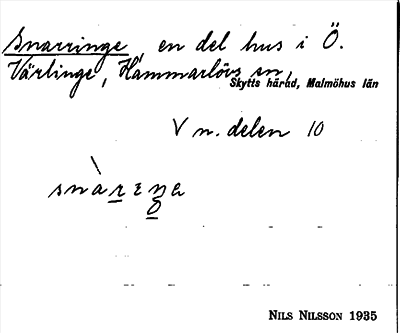 Snarringe, en del hus i Ö.
Värlinge, Hammarlövs sn,
Skytts härad, Malmöhus län
V n. delen 10
NILS NILSSON 1935